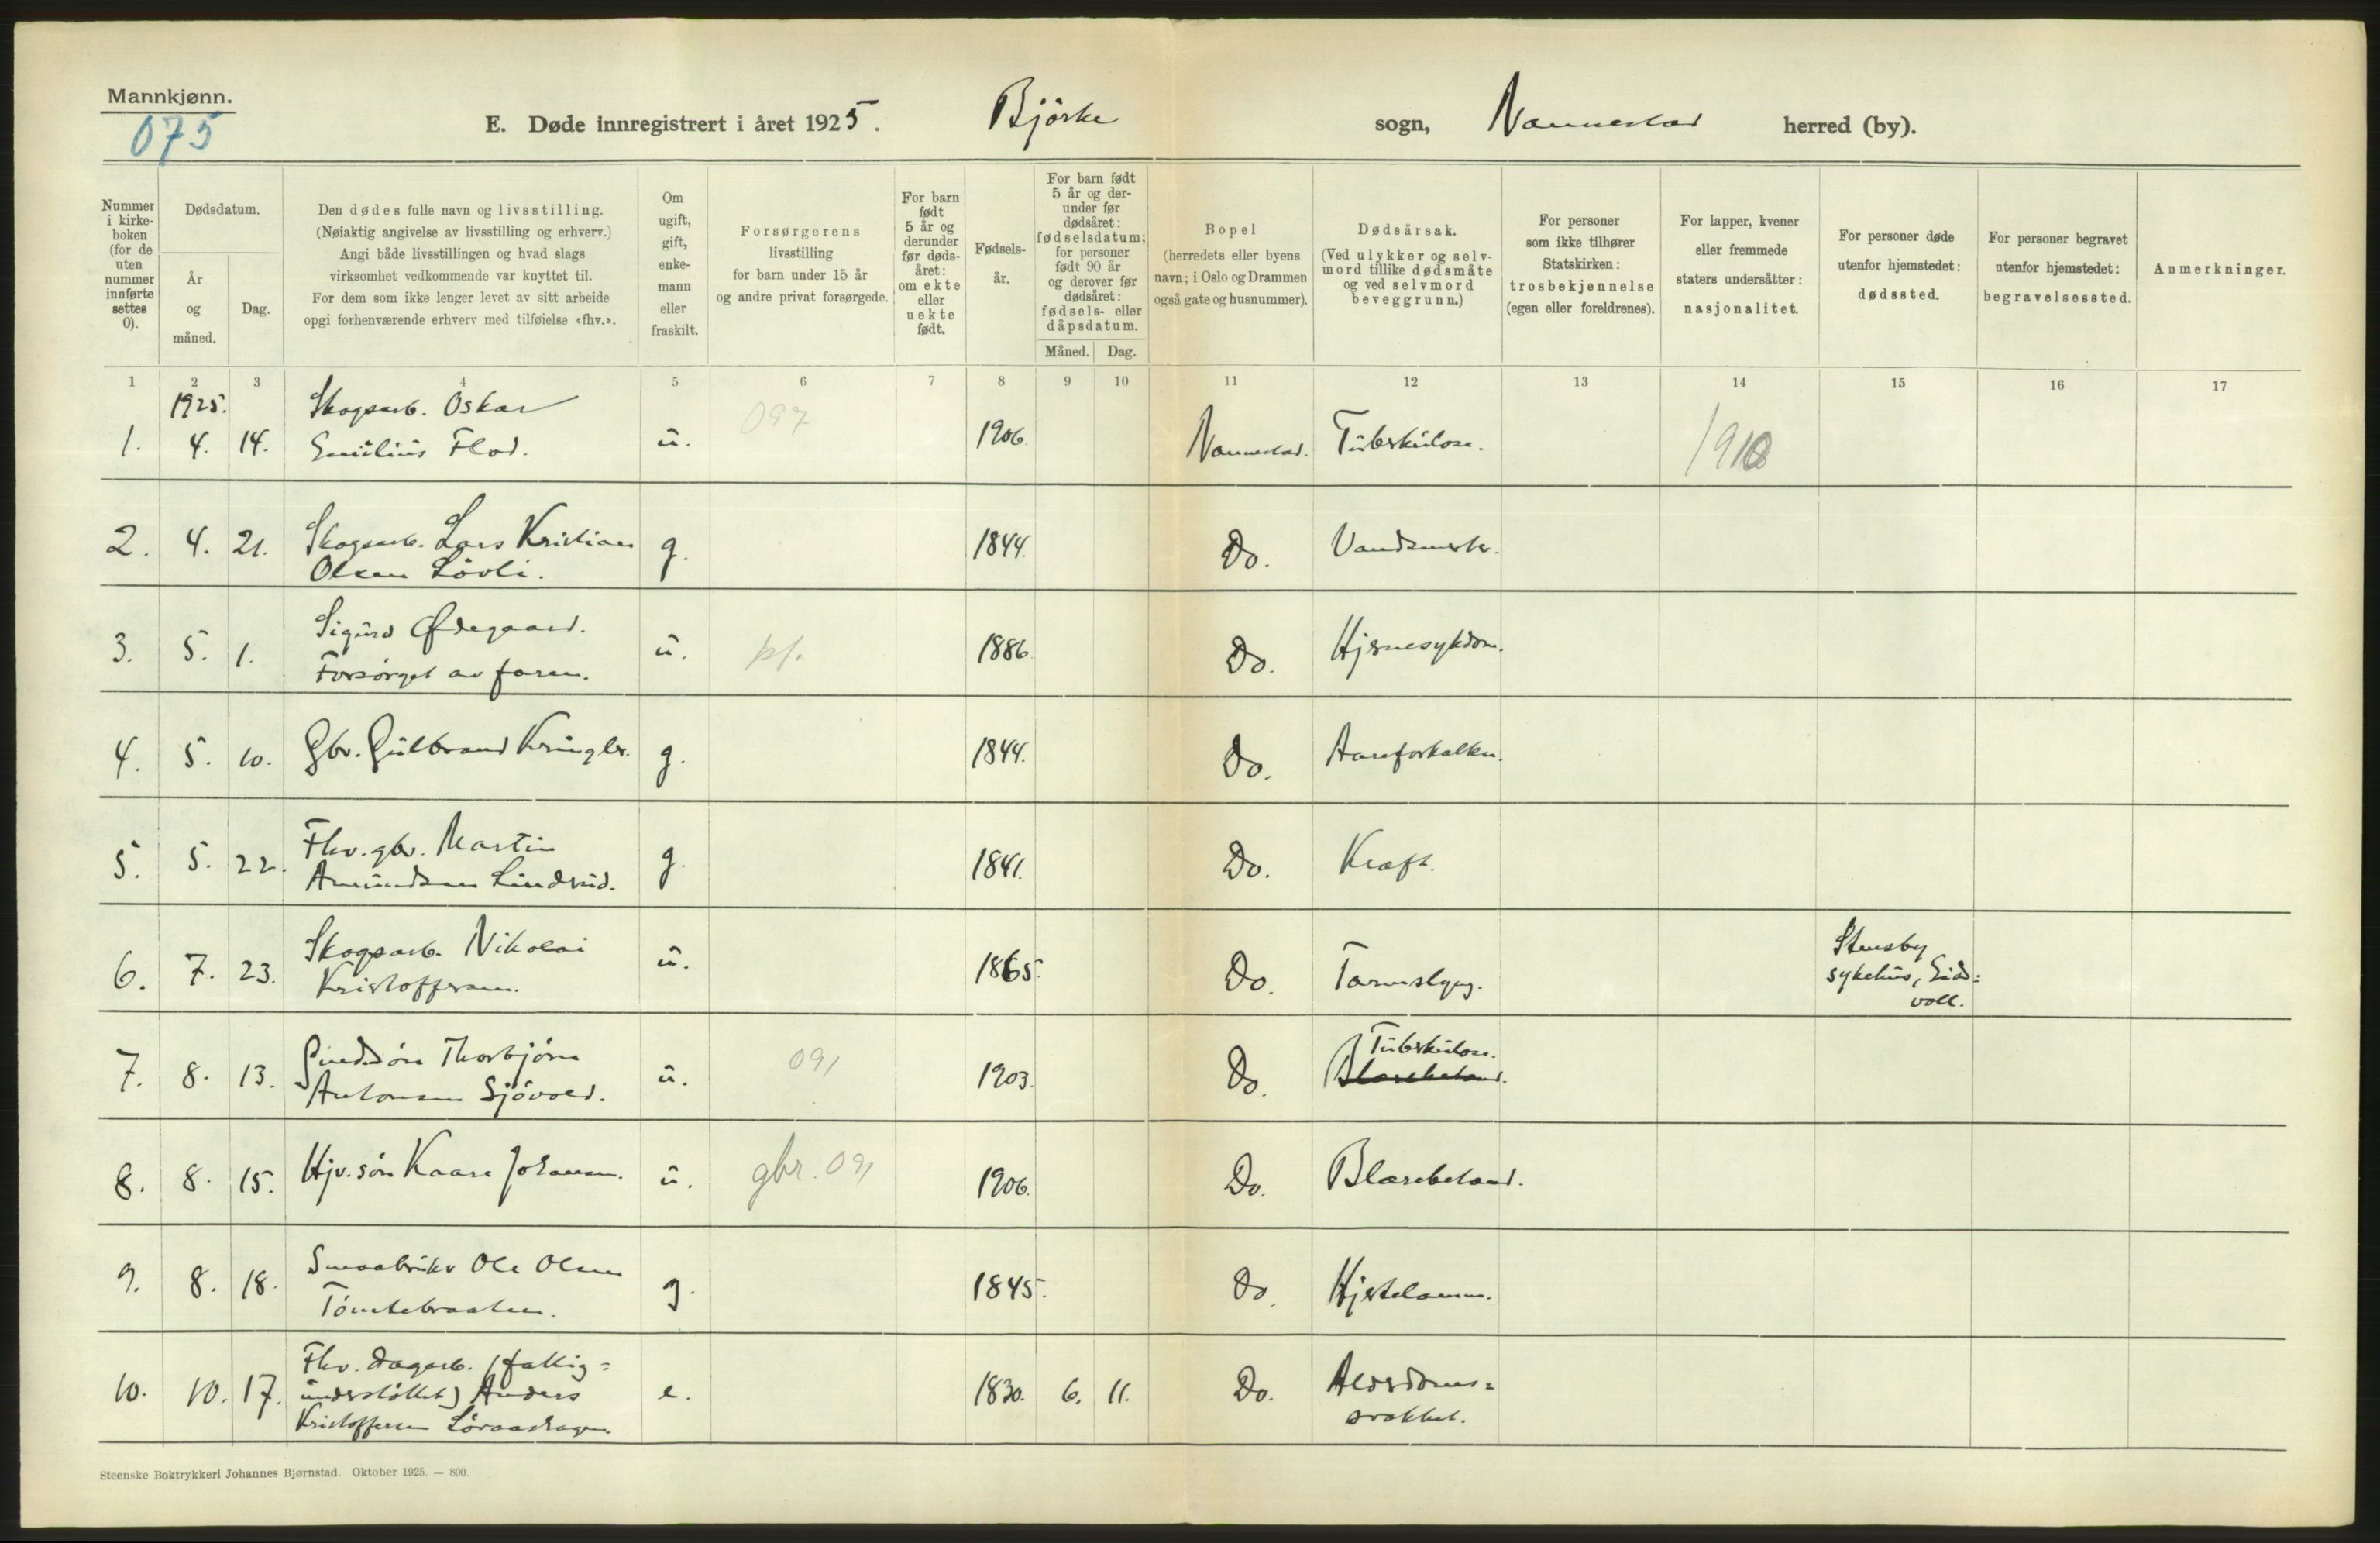 Mannkjønn.
075
E. Døde innregistrert i året 1925.
Björke
sogn,
Nannestad
herred (by).
Nummer
i kirke-
boken
(for de
uten
nummer
innførte
settes
0).
Dødsdatum.
År
og
måned.
Dag.
Den dødes fulle navn og livsstilling.
(Nøiaktig angivelse av livsstilling og erhverv.)
Angi både livsstillingen og hvad slags
virksomhet vedkommende var knyttet til.
For dem som ikke lenger levet av sitt arbeide
opgi forhenværende erhverv med tilføielse «fhv.».
Om
ugift,
gift,
enke-
mann
eller
fraskilt.
Forsørgerens
livsstilling
for barn under 15 år
og andre privat forsørgede.
For barn
født
5 år og
derunder
før døds-
året:
om ekte
eller
uekte
født.
Fødsels-
år.
For barn født
5 år og der-
under før
dødsåret:
fødselsdatum;
for personer
født 90 år
og derover før
dødsåret:
fødsels- eller
dåpsdatum.
Måned.
Dag.
Bopel
(herredets eller byens
navn; i Oslo og Drammen
også gate og husnummer).
Dødsårsak.
(Ved ulykker og selv-
mord tillike dødsmåte
og ved selvmord
beveggrunn.)
For personer
som ikke tilhører
Statskirken:
trosbekjennelse
(egen eller foreldrenes).
For lapper, kvener
eller fremmede
staters undersåtter:
nasjonalitet.
For personer døde
utenfor hjemstedet:
dødssted.
For personer begravet
utenfor hjemstedet:
begravelsessted.
Anmerkninger.
1 2 3 4 5 6 7 8 9 10 11 12 13 14 15 16 17
1925.
Skogsarb. Oskar
1. 4. 14. Emilius Flod. u. 097 1906. Nannestad. Tuberkulose. 1910
2. 4. 21. Skogsarb. Lars Kristian g. 1844. Do.
Olsen Lövli.
3. 5. 1. Sigurd Ødegaard. u. pf. 1886 Do. Hjernesykdom.
Forsörget av faren.
4. 5. 10. Gbr. Gulbrand Kringler. g. 1844. Do. Aareforkalkn.
5. 5. 22. Fhv. gbr. Martin g. 1841. Do. Kræft.
Amundsen Lundrud.
6. 7. 23. Skogsarb. Nikolai u. 1865. Do. Tarmslyng. Stensby
Kristoffersen. sykehus, Eids=
voll.
7. 8. 13. Thorbjörn u. 091 1903. Do. Tuberkulose.
Antonsen Sjövold. Blærebetænd.
8. 8. 15. Hjv. sön Kaare Johansen. u. gbr. 091 1906. Do. Blærebetænd.
9. 8. 18. Smaabruker Ole Olsen g. 1845. Do. Hjertelamm.
Tömtebraaten.
10. 10. 17. Fhv. dagarb. (fattig= e. 1830. 6. 11. Do. Alderdoms=
understöttet) Anders svakhet.
Kristoffersen
Steenske Boktrykkeri Johannes Bjørnstad. Oktober 1925. — 800.